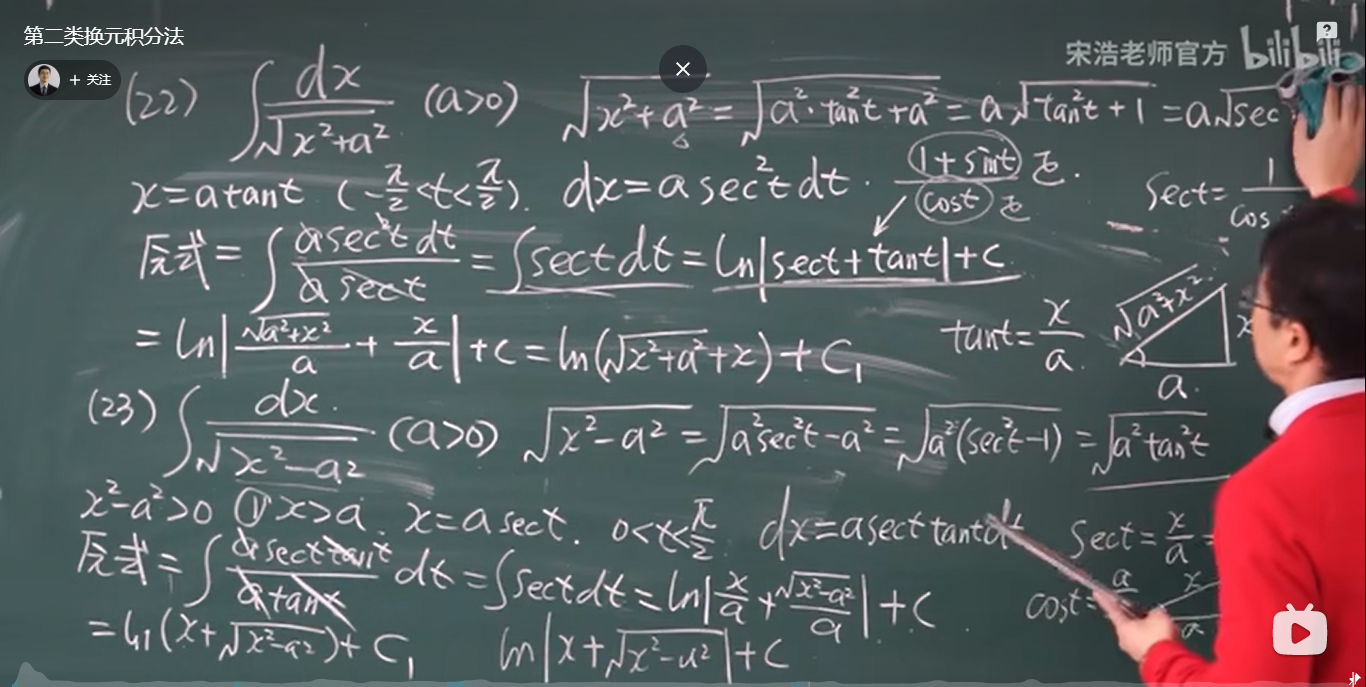 第二类换元积分法
+ 关注
宋浩老师官方 bilibili
(22) ∫ dx/√(x²+a²) (a>0) √(x²+a²) = √(a²·tan²t+a²) = a√(tan²t+1) = a√sec
x=atant (-π/2<t<π/2). dx=asec²tdt. (1+sint)/cost 正. 正 sect=1/cos
原式= ∫ asec²tdt/asect = ∫sectdt = ln|sect+tant|+C
= ln|√(a²+x²)/a + x/a|+C = ln(√(x²+a²)+x)+C₁ tant=x/a. √(a²+x²) x a.
(23) ∫ dx/√(x²-a²) (a>0) √(x²-a²) = √(a²sec²t-a²) = √(a²(sec²t-1)) = √(a²tan²t)
x²-a²>0 ①x>a. x=asect. 0<t<π/2. dx=asecttantdt sect=x/a=
原式= ∫ asecttant/atant dt = ∫sectdt = ln|x/a + √(x²-a²)/a|+C cost=a x a
= ln(x+√(x²-a²))+C₁ ln|x+√(x²-a²)|+C